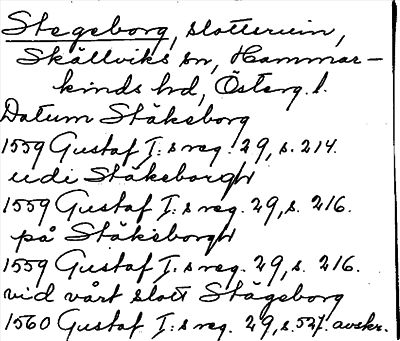 Stegeborg, slottsruin,
Skällviks sn, Hammar-
kinds hd, Österg. l.
Datum Stäkeborg
1559 Gustaf I:s reg. 29, s. 214.
udi Stäkeborgh
1559 Gustaf I:s reg. 29, s. 216.
på Stäkeborgh
1559 Gustaf I:s reg. 29, s. 216.
vid vårt slott Stägeborg
1560 Gustaf I:s reg. 29, s. 527. avskr.